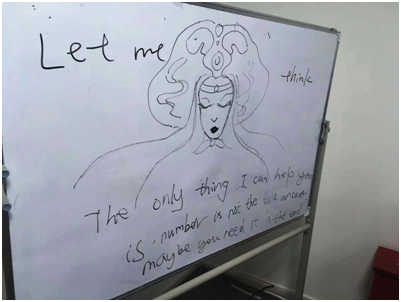 Let me
think
The only thing I can help you
is number is not the true answer
maybe you need it in the end